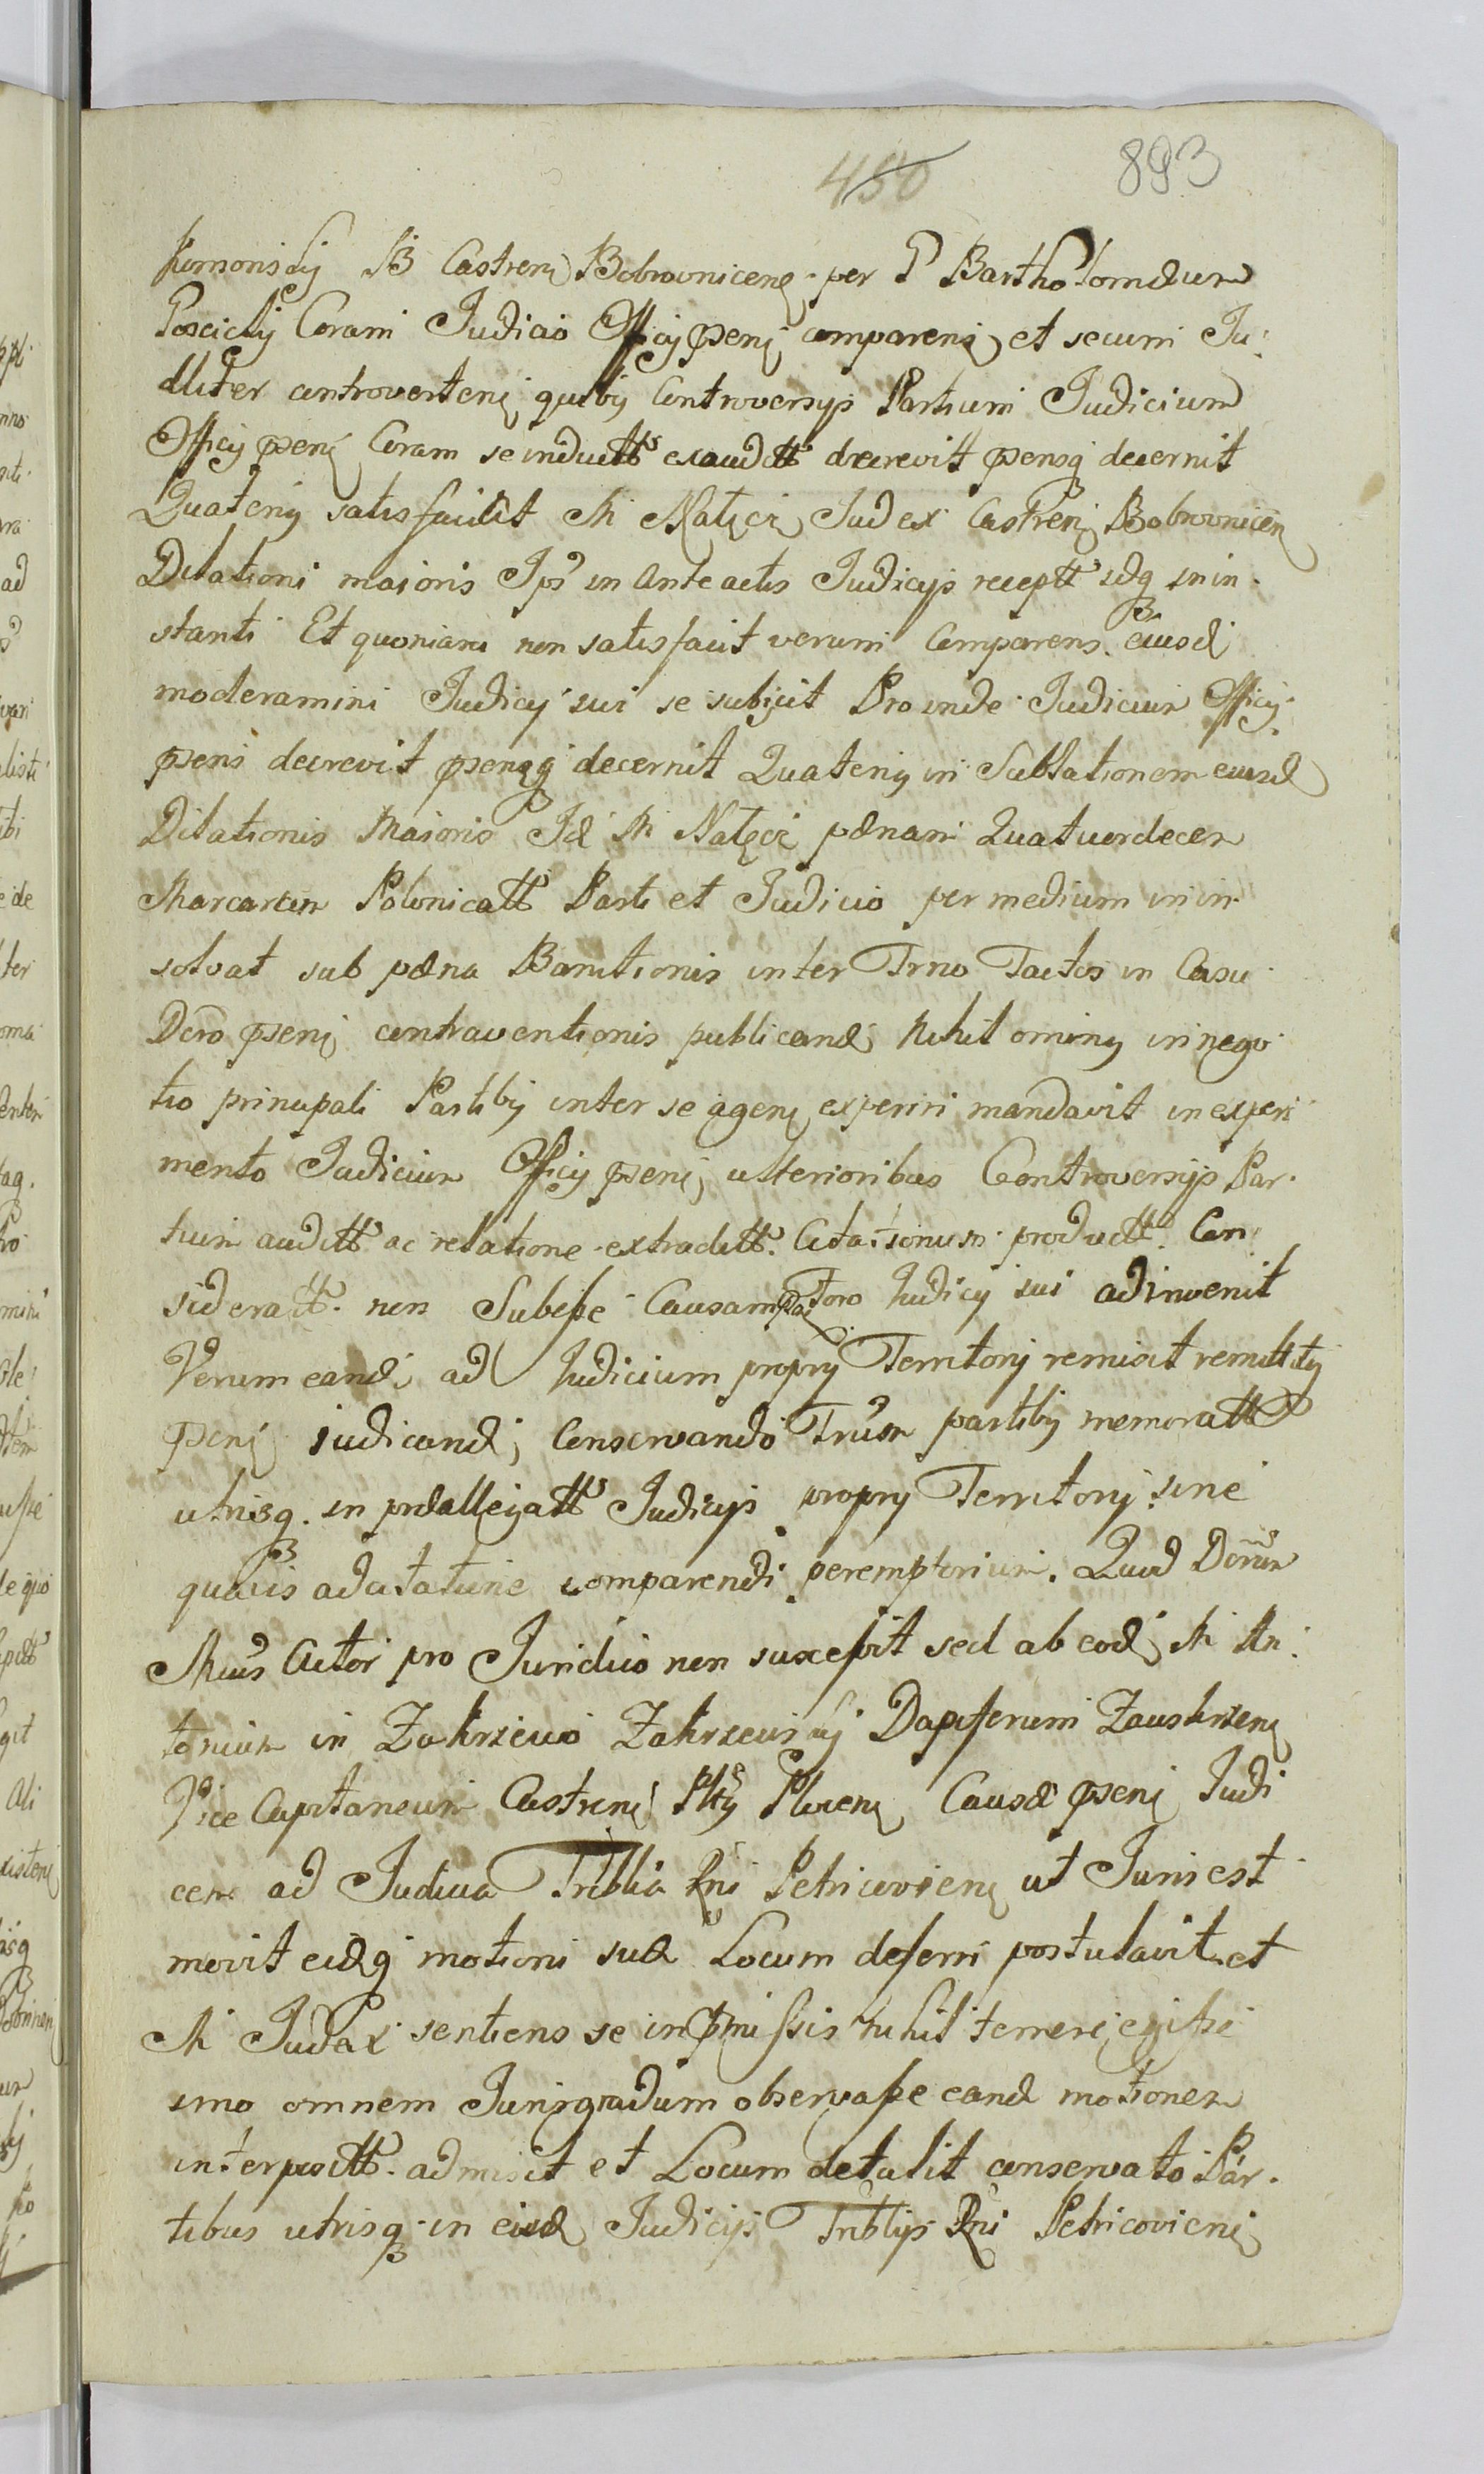 450 893
Komoriskÿ B Castren Bobrovnicen per P Bartholomæum
Poscicky Coram Judicio Officij psens comparens et secum Ju
dliter controverteni quibus Controversijs Partium Judicium
Officij pseni Coram se induttt exauditt decrevit psensq decernit
Quatenus satisfaciat M Natęcz Judex Castren Bobrownicen
Dilationi maioris Jps in Anteactis Judicijs receptt idq in in
stanti Et quoniam non satisfacit verum Comparens eiusd
moderamini Judicij sui se subijcit Proinde Judicium Officij
psens decrevit psensq decernit Quatenus in Sublationem eiusd
Dilationis Maioris Id M Natęcz pænam Quatuordecem
Marcarum Polonicatt Parti et Judicio per medium in in
solvat sub pæna Banitionis inter Trno Tactos in Casu
Dcro pseni contraventionis publicand Nihilominus in nego
tio principali Partibus inter se ageni experiri mandavit in experi
mento Judicium Officij pseni ulterioribus Controversijs Par
tium auditt ac relatione extraditt Citationum productt Con
sideratt non Subesse Causam Foro Judicij sui adinvenit
Verum eand ad Judicium proprij Territorij remisit remittitq
pseni judicand, Conservando Trum partibus memoratt
utrisq in præallegatt Judicijs proprij Territorij sine
quavis adcitatione comparendi peremptorium. Quod Dcrum
Mcus Actor pro Juridico non suscepit sed ab eod M An
tonium in Zakrzewo Zakrzewskij Dapiferum Zauskrzeni
Vice Capitaneum Castreni Plcy Plocens Causæ pseni Judi
cem ad Judicia Triblia Rni Petricovieni ut Juris est
movit eidq motioni suæ Locum deferri postulavit et
M Judex sentiens se in præmissis nihil temere egisse
imo omnem Juris gradum observasse eand motionem
interpositt admisit et Locum detulit conservato Par
tibus utrisq in eisd Judicijs Triblijs Rni Petricovieni